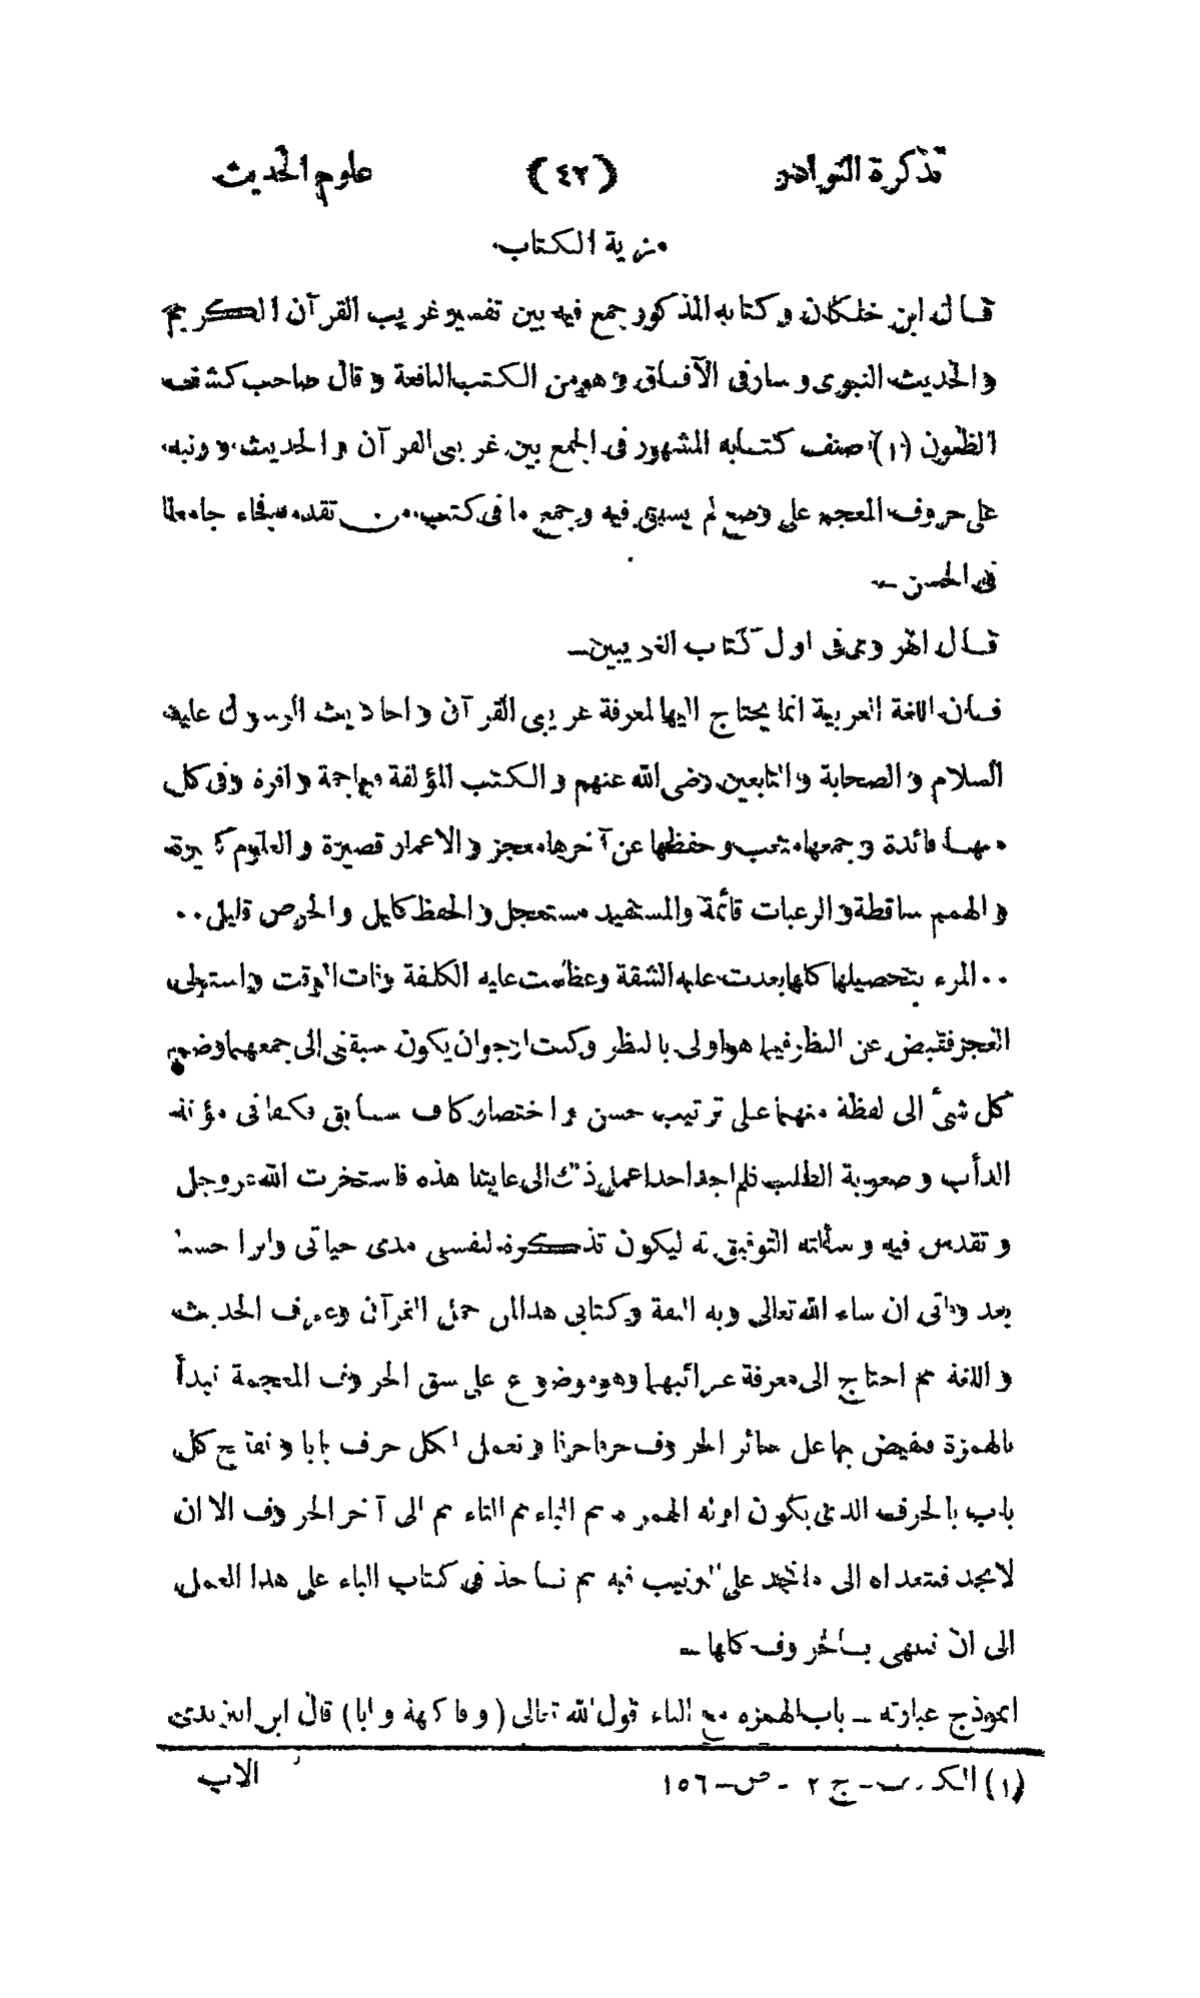 تذكرة النوادر (٤٢) علوم الحديث
مزية الكتاب
قال ابن خلكان وكتابه المذكور جمع فيه بين تفسير غريب القرآن الكريم
والحديث النبوى وسار فى الآفاق وهو من الكتب النافعة وقال صاحب كشف
الظنون (١) صنف كتابه المشهور فى الجمع بين غريبى القرآن والحديث ورتبه
على حروف المعجم على وضع لم يسبق فيه وجمع ما فى كتب من تقدمه فجاء جامعا
فى الحسن ــ
قال الهروى فى اول كتاب الغريبين ــ
فان اللغة العربية انما يحتاج اليها لمعرفة غريبى القرآن واحاديث الرسول عليه
السلام والصحابة والتابعين رضى الله عنهم والكتب المؤلفة فيها جمة وافرة وفى كل
منها فائدة وجمعها متعب وحفظها عن آخرها معجز والاعمار قصيرة والعلوم كثيرة
والهمم ساقطة والرغبات قائمة والمستفيد مستعجل والحفظ كليل والحرص قليل . .
. . المرء بتحصيلها كلها بعدت عليه الشقة وعظمت عليه الكلفة وفات الوقت واستولى
العجز فقبض عن النظر فيما هو اولى بالنظر وكنت ارجو ان يكون سبقنى الى جمعهما وضم
كل شئ الى لفظة منهما على ترتيب حسن واختصار كاف سابق فكفانى مؤنة
الدأب وصعوبة الطلب فلم اجد احدا عمل ذلك الى غايتنا هذه فاستخرت الله عز وجل
وتقدس فيه وسألته التوفيق له ليكون تذكرة لنفسى مدى حياتى واثرا حسنا
بعد وفاتى ان شاء الله تعالى وبه الثقة وكتابى هذا لمن حمل القرآن وعرف الحديث
واللغة ثم احتاج الى معرفة غرائبهما وهو موضوع على نسق الحروف المعجمة نبدأ
بالهمزة فنفيض بها على سائر الحروف حرفا حرفا ونعمل لكل حرف بابا ونفتح كل
باب بالحرف الذى يكون اوله الهمزة ثم الباء ثم التاء ثم الى آخر الحروف الا ان
لا نجد فنتعداه الى ما نجد على الترتيب فيه ثم نأخذ فى كتاب الباء على هذا العمل
الى ان ننتهى بالحروف كلها ــ
انموذج عبارته ــ باب الهمزه مع الباء قول الله تعالى (وفاكهة وابا) قال ابن اليزيدى
(١) الكشف ـ ج ٢ ـ ص ـ ١٥٦ الاب